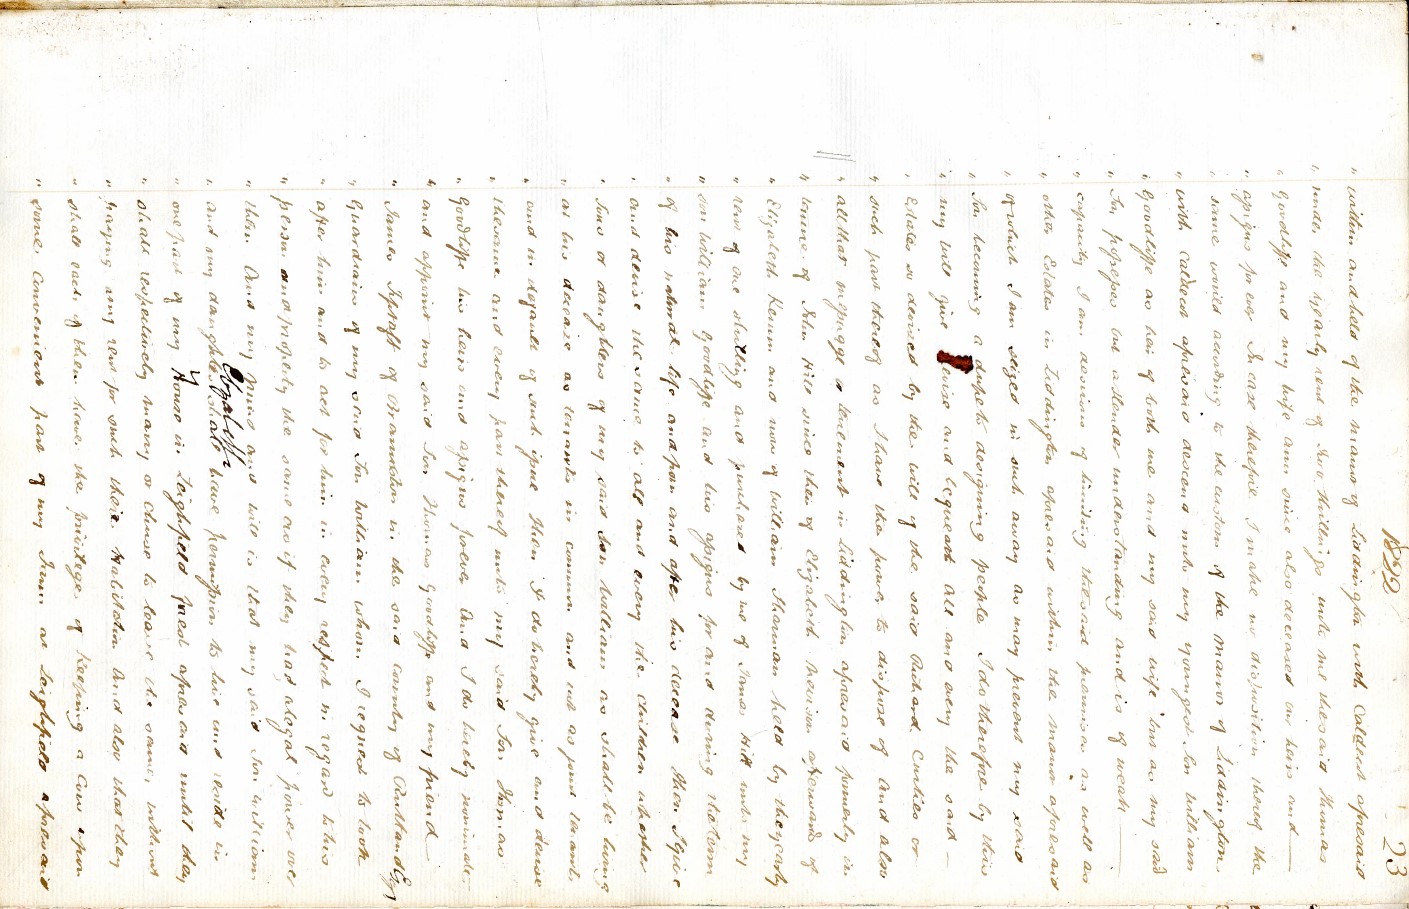 1822
23
" within and held of the manor of Liddington with Caldecot aforesaid
" under the yearly rent of Two shillings unto me the said Thomas
" Goodliffe and my wife Ann since also deceased our heirs and
" assigns for ever In case therefore I make no disposition thereof the
" same would according to the custom of the Manor of Liddington
" with Caldecot aforesaid descend unto my youngest Son William
" Goodliffe as heir of both me and my said wife but as my said
" Son possesses but a slender understanding and is of weak
" capacity I am desirous of limiting the said premises as well as
" other Estates in Liddington aforesaid within the manor aforesaid
" of which I am seized in such a way as may prevent my said
" Son becoming a dupe to designing people I do therefore by this
" my will give devise and bequeath all and every the said
" Estate so devised by the will of the said Richard or
" such part thereof as I have the power to dispose of And also
" all that messuage or tenement in Liddington aforesaid formerly in
" tenure of John Hill since then of Elizabeth afterwards of
" Elizabeth and now of William Sharman held by the yearly
" rent of one shilling and purchased by me of James Hill unto my
" son William Goodliffe and his assigns for and during the term
" of his natural life and from and after his decease Then I give
" and devise the same to all and every the children whether
" Sons or daughters of my said Son William as shall be living
" at his decease as tenants in common and not as joint tenants
" and in default of such issue Then I do hereby give and devise
" the same and every part thereof unto my said Son Thomas
" Goodliffe his heirs and assigns forever And I do hereby nominate
" and appoint my said Son Thomas Goodliffe and my friend
" James of Braunston in the said county of Rutland Esqr
" Guardians of my said Son William whom I request to look
" after him and to act for him in every respect in regard to his
" person and property the same as if they had a legal power over
" him And my mind and will is that my said Son William
" and my daughter Elizabeth shall have permission to live and reside in
" one part of my House in Leighfield forest aforesaid until they
" shall respectively marry or choose to leave the same, without
" paying any rent for such their habitation And also that they
" shall each of them have the privilege of keeping a Cow upon
" some convenient part of my Farm at Leighfield aforesaid